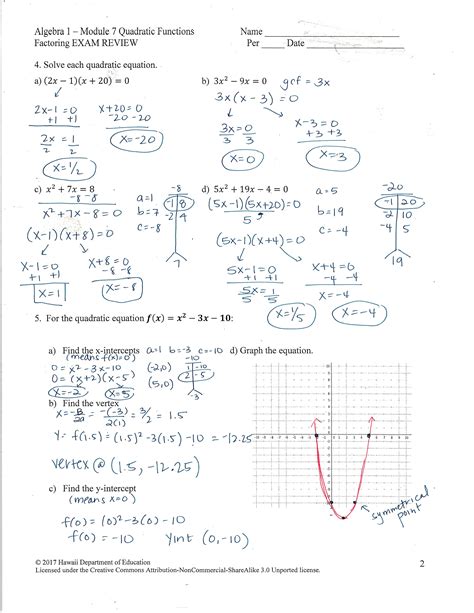 Algebra 1 – Module 7 Quadratic Functions
Name
Factoring EXAM REVIEW
Per Date
4. Solve each quadratic equation.
a) (2x − 1)(x + 20) = 0
2x-1 = 0
+1 +1
2x = 1
2 2
x=1/2
x+20 = 0
-20 -20
x=-20
b) 3x² − 9x = 0 gcf = 3x
3x(x - 3) = 0
3x = 0
3 3
x=0
x-3 = 0
+3 +3
x=3
c) x² + 7x = 8
-8 -8
x² + 7x - 8 = 0
(x-1)(x+8) = 0
x-1 = 0
+1 +1
x=1
x+8 = 0
-8 -8
x=-8
a=1
b=7
c=-8
-8
-1 8
-2 4
7
d) 5x² + 19x − 4 = 0
(5x-1)(5x+20) = 0
5
(5x-1)(x+4) = 0
5x-1 = 0
+1 +1
5x = 1
5 5
x=1/5
x+4 = 0
-4 -4
x=-4
x=-4
a=5
b=19
c=-4
-20
-1 20
-2 10
-4 5
19
5. For the quadratic equation f(x) = x² − 3x − 10:
a) Find the x-intercepts a=1 b=-3 c=-10
(means f(x)=0)
0 = x² - 3x - 10
0 = (x+2)(x-5)
x=-2 x=5
(-2,0)
(5,0)
-10
1 -10
2 -5
-3
b) Find the vertex
= -(-3) = 3/2 = 1.5
2(1)
y = f(1.5) = (1.5)² - 3(1.5) - 10 = -12.25
vertex @ (1.5, -12.25)
c) Find the y-intercept
(means x=0)
f(0) = (0)² - 3(0) - 10
f(0) = -10 yint (0, -10)
d) Graph the equation.
symmetrical
point
© 2017 Hawaii Department of Education
2
Licensed under the Creative Commons Attribution-NonCommercial-ShareAlike 3.0 Unported license.